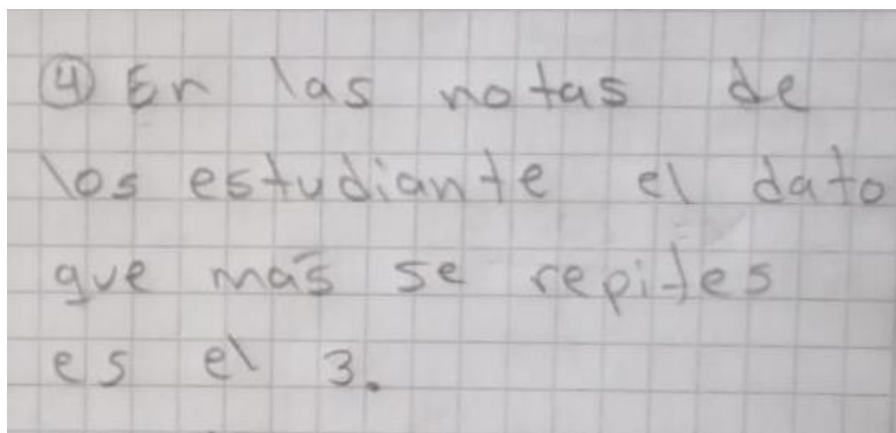 ④ En las notas de
los estudiante el dato
que más se repites
es el 3.